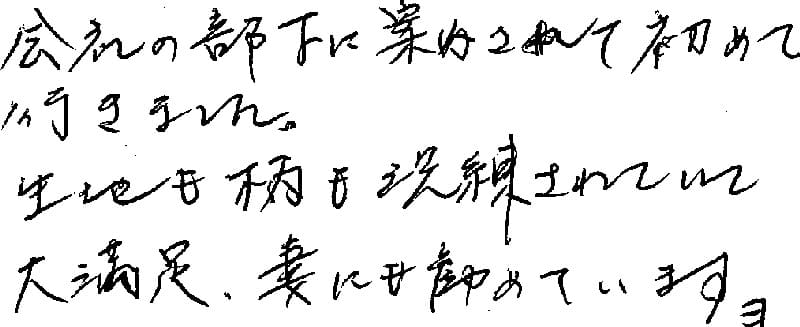 会社の部下に案内されて初めて
行きました。
生地も柄も洗練されていて
大満足、妻にも勧めています。